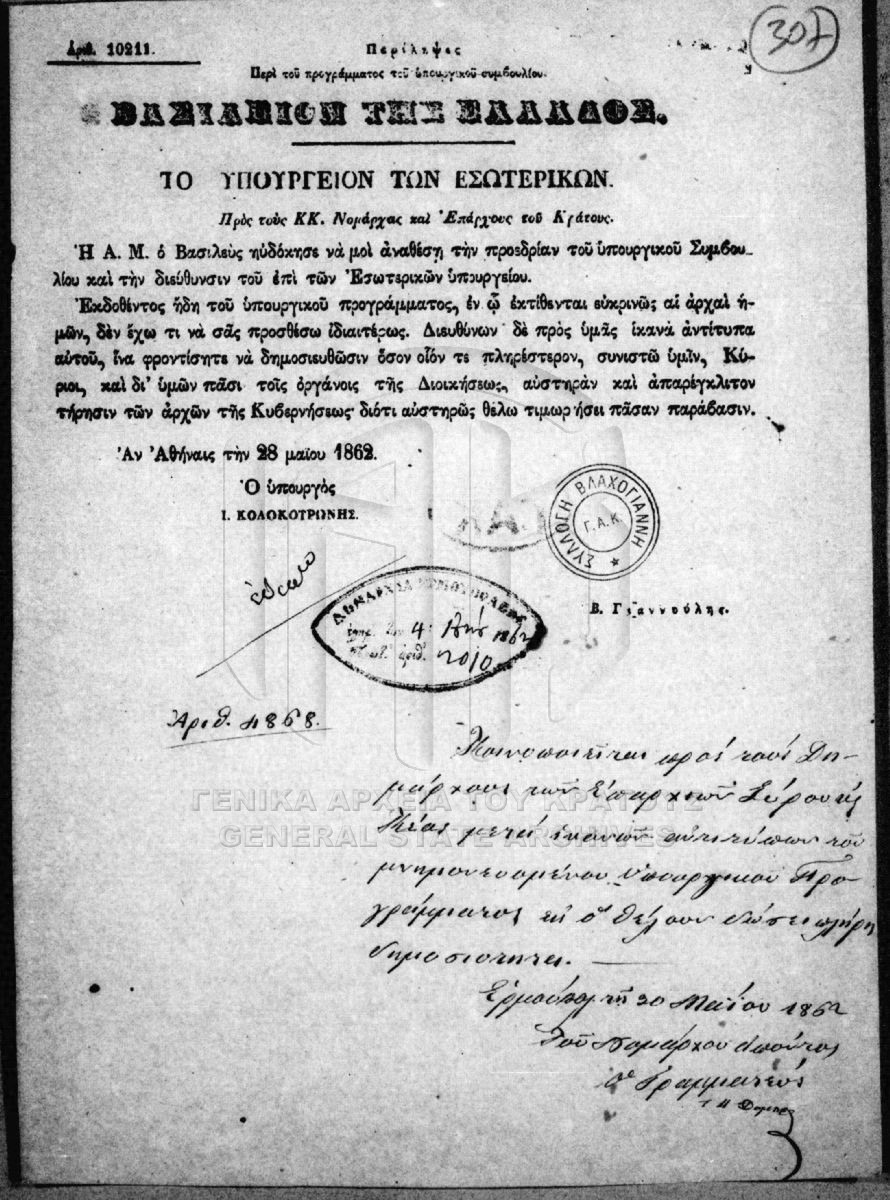 Ἀριθ. 10211.
307
Περίληψις
Περὶ τοῦ προγράμματος τοῦ ὑπουργικοῦ συμβουλίου.
ΒΑΣΙΛΕΙΟΝ ΤΗΣ ΕΛΛΑΔΟΣ.
ΤΟ ΥΠΟΥΡΓΕΙΟΝ ΤΩΝ ΕΣΩΤΕΡΙΚΩΝ.
Πρὸς τοὺς ΚΚ. Νομάρχας καὶ Ἐπάρχους τοῦ Κράτους.
Ἡ Α. Μ. ὁ Βασιλεὺς ηὐδόκησε νὰ μοὶ ἀναθέσῃ τὴν προεδρίαν τοῦ ὑπουργικοῦ Συμβου-
λίου καὶ τὴν διεύθυνσιν τοῦ ἐπὶ τῶν Ἐσωτερικῶν ὑπουργείου.
Ἐκδοθέντος ἤδη τοῦ ὑπουργικοῦ προγράμματος, ἐν ᾧ ἐκτίθενται εὐκρινῶς αἱ ἀρχαὶ ἡ-
μῶν, δὲν ἔχω τι νὰ σᾶς προσθέσω ἰδιαιτέρως. Διευθύνων δὲ πρὸς ὑμᾶς ἱκανὰ ἀντίτυπα
αὐτοῦ, ἵνα φροντίσητε νὰ δημοσιευθῶσιν ὅσον οἷόν τε πληρέστερον, συνιστῶ ὑμῖν, Κύ-
ριοι, καὶ δι' ὑμῶν πᾶσι τοῖς ὀργάνοις τῆς Διοικήσεως, αὐστηρὰν καὶ ἀπαρέγκλιτον
τήρησιν τῶν ἀρχῶν τῆς Κυβερνήσεως· διότι αὐστηρῶς θέλω τιμωρήσει πᾶσαν παράβασιν.
Ἀν Ἀθήναις τὴν 28 μαΐου 1862.
Ὁ ὑπουργὸς
Ι. ΚΟΛΟΚΟΤΡΩΝΗΣ.
ΣΥΛΛΟΓΗ ΒΛΑΧΟΓΙΑΝΝΗ
Γ.Α.Κ.
Β. Γιαννούλης.
ΔΗΜΑΡΧΙΑ ΕΡΜΟΥΠΟΛΕΩΣ
4 1862
πρωτ. ἀριθ. 2010
Ἀριθ. 4868.
Κοινοποιεῖται πρὸς τοὺς Δη-
μάρχους τῶν Ἐπαρχιῶν Σύρου κ
Κέας μετὰ ἱκανῶν ἀντιτύπων τοῦ
μνημονευομένου Ὑπουργικοῦ Προ-
γράμματος εἰς ὃ θέλουν δώσει πλήρη
δημοσιότητα.
Ἑρμούπολ τῇ 30 Μαΐου 1862
Τοῦ Νομάρχου ἀπόντος
ὁ Γραμματεὺς
ΓΕΝΙΚΑ ΑΡΧΕΙΑ ΤΟΥ ΚΡΑΤΟΥΣ
GENERAL STATE ARCHIVES